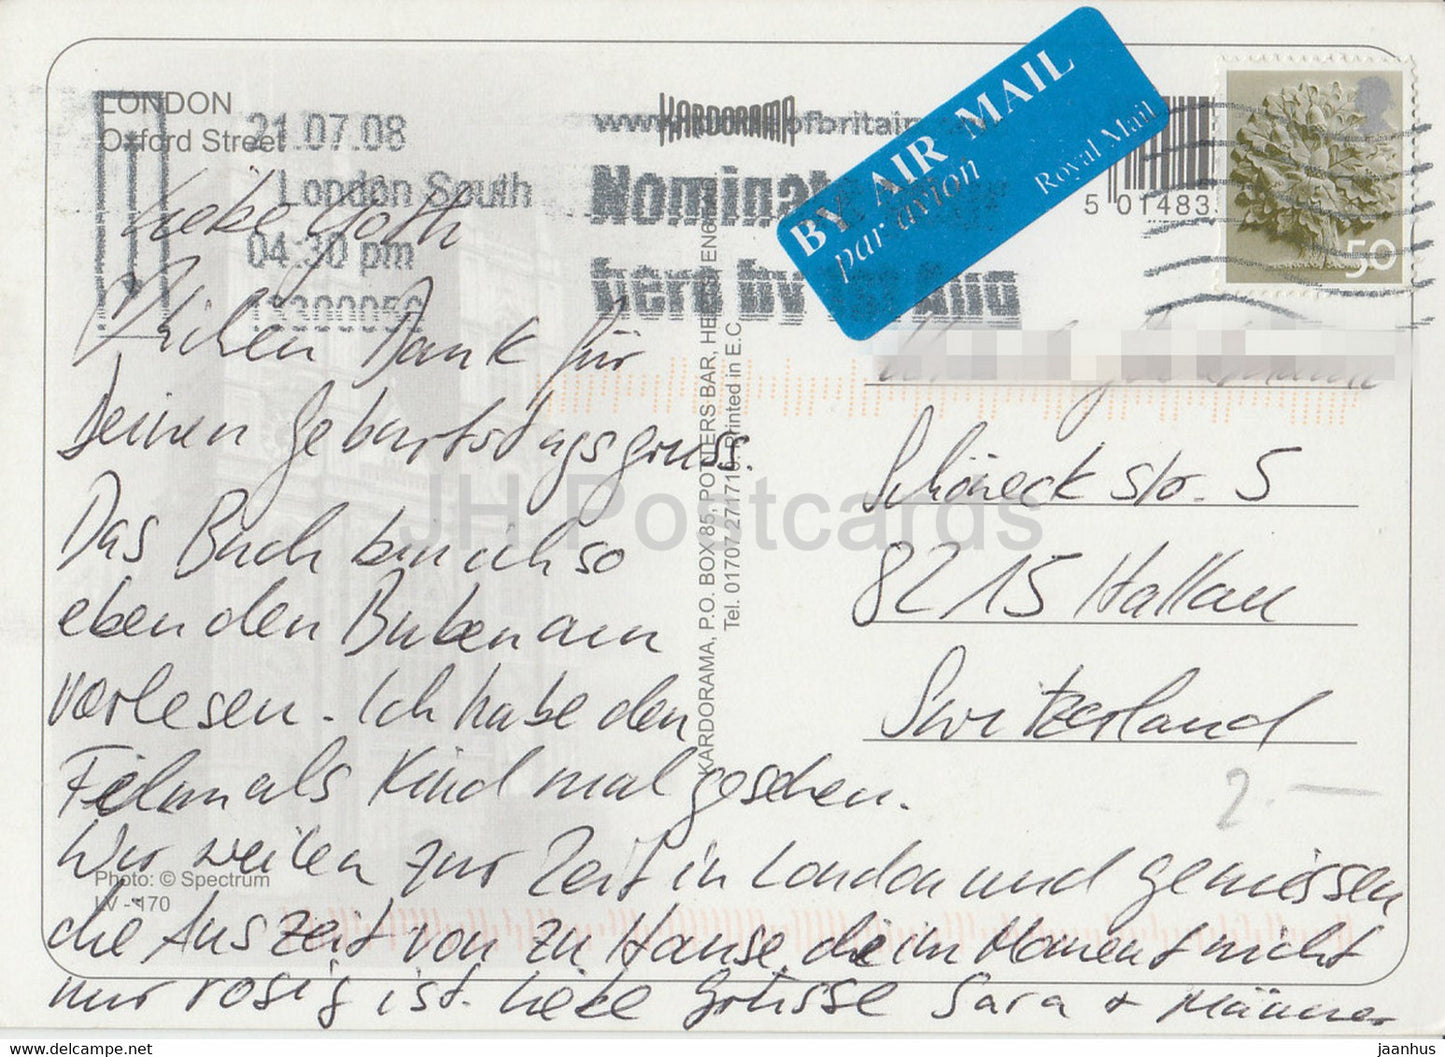 LONDON
Oxford Street
21.07.08
London South
04:30 pm
13300050
KARDORAMA
www. ofbritain
Nominate
hero by Aug
BY AIR MAIL
par avion
Royal Mail
5 01483
50
Liebe Goth
Vielen Dank für
Deinen Geburtstagsgruss.
Das Buch bin ich so
eben den Buben am
vorlesen. Ich habe den
Film als Kind mal gesehen.
Wir weilen zur Zeit in London und geniessen
die Auszeit von zu Hause, die im Moment nicht
nur rosig ist. Liebe Grüsse Sara + Männer
Schöneckstr. 5
8215 Hallau
Switzerland
2.-
KARDORAMA, P.O. BOX 85, POTTERS BAR, HERTS, EN6
Tel. 01707 271710. Printed in E.C.
Photo: © Spectrum
LV - 170
JH Postcards
www.delcampe.net
jaanhus